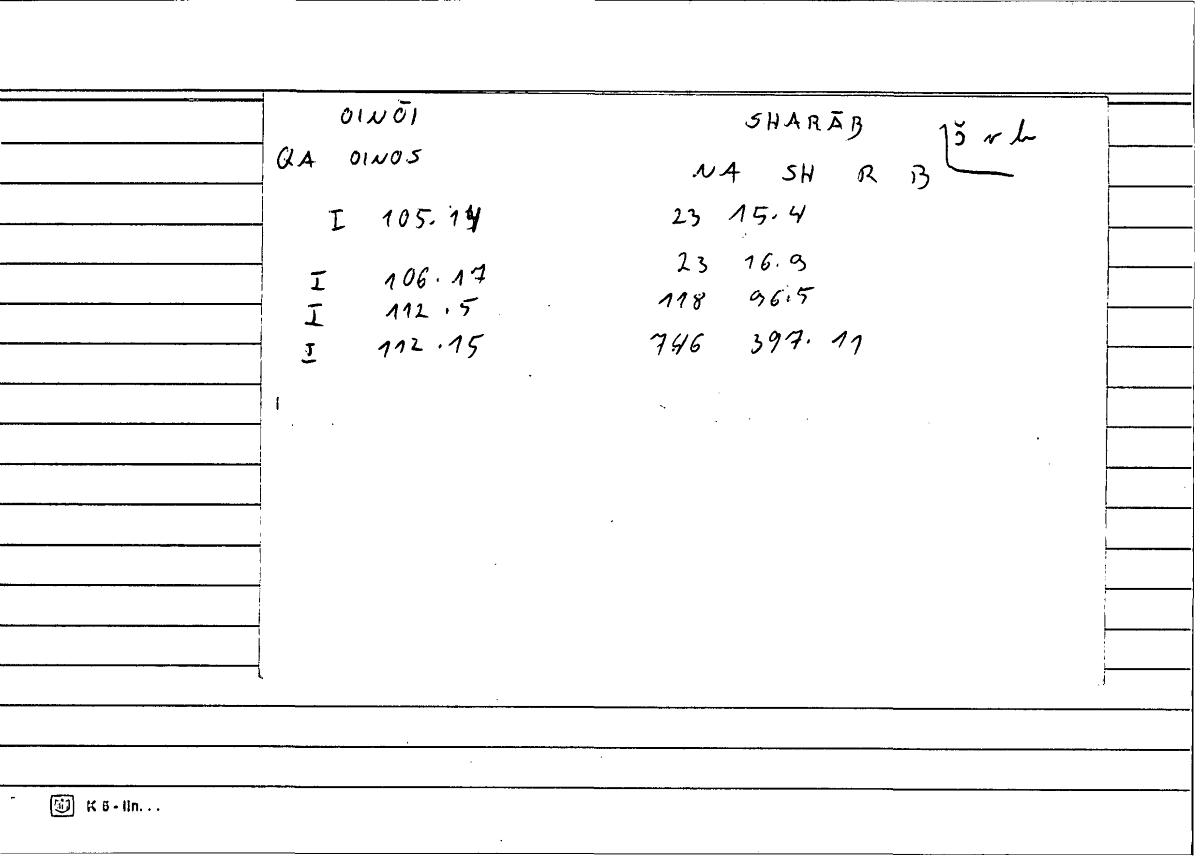 OINŌI SHARĀB š r b
QA OINOS NA SH R B
I 105. 23 15.4
I 106.17 23 16.9
I 112.5 118 96.5
I 112.15 746 397.11
K 5 - lin...